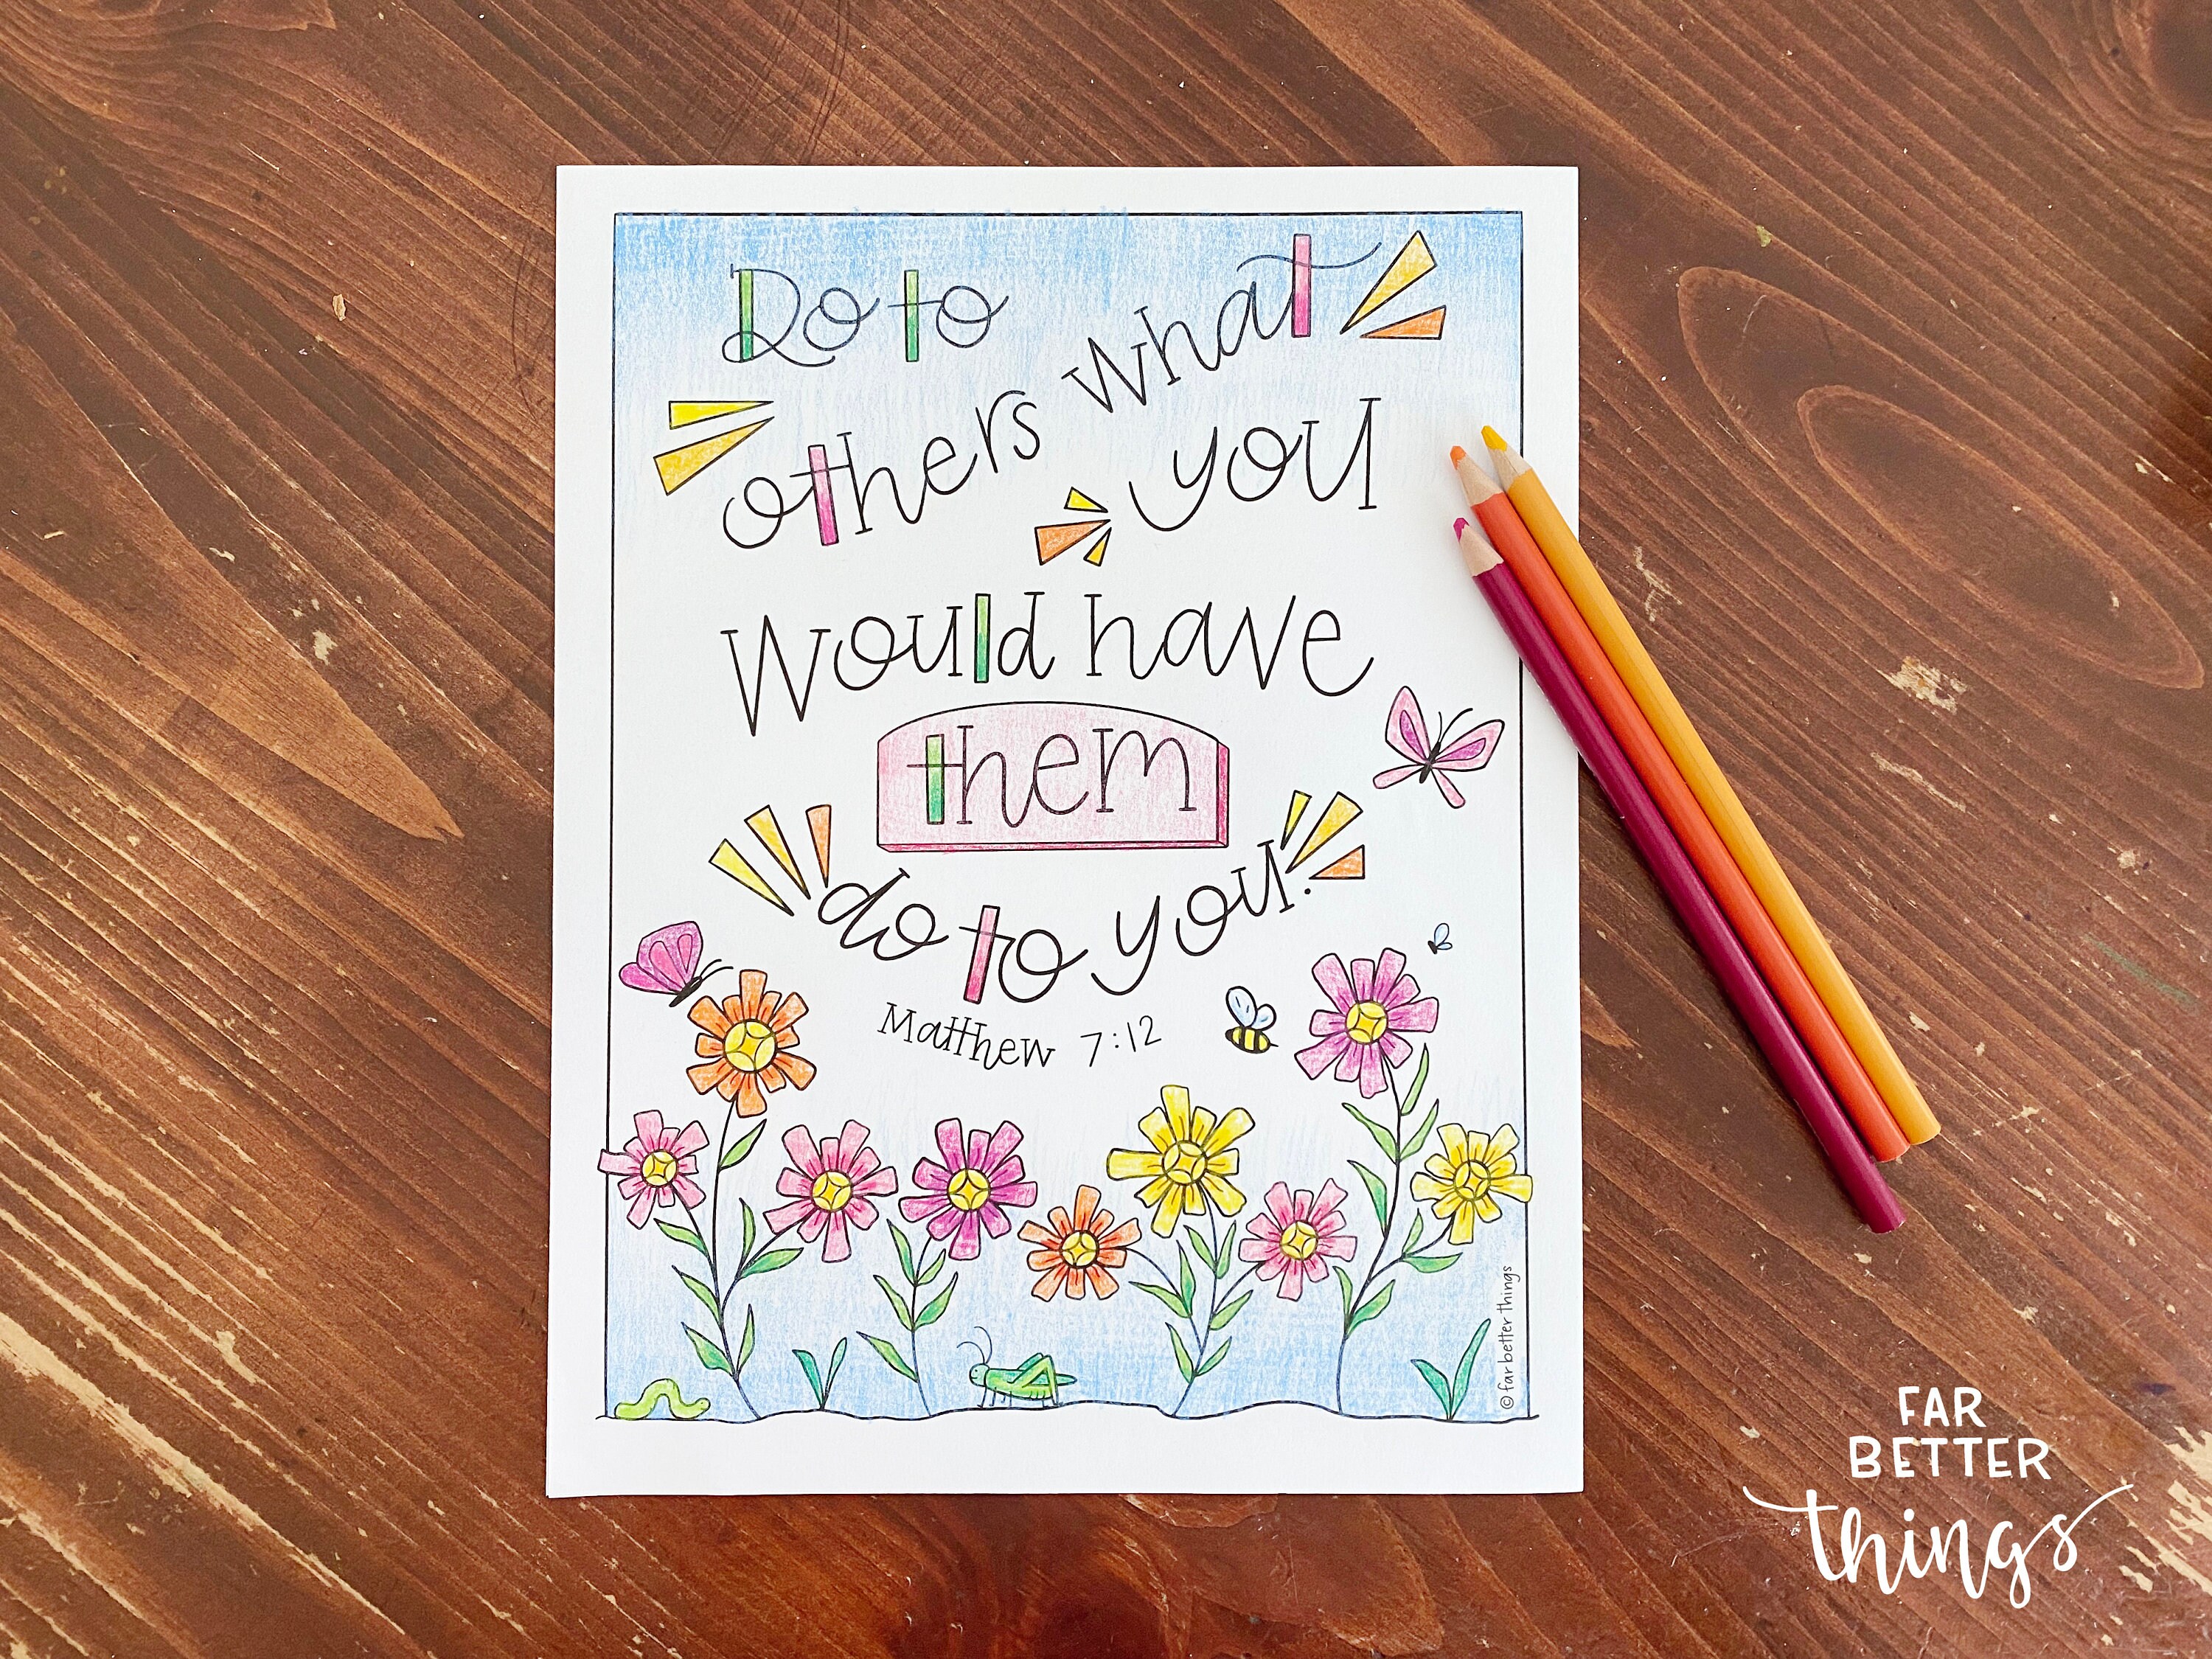 Do to
others what
you
would have
them
do to you.
Matthew 7:12
© far better things
FAR
BETTER
things